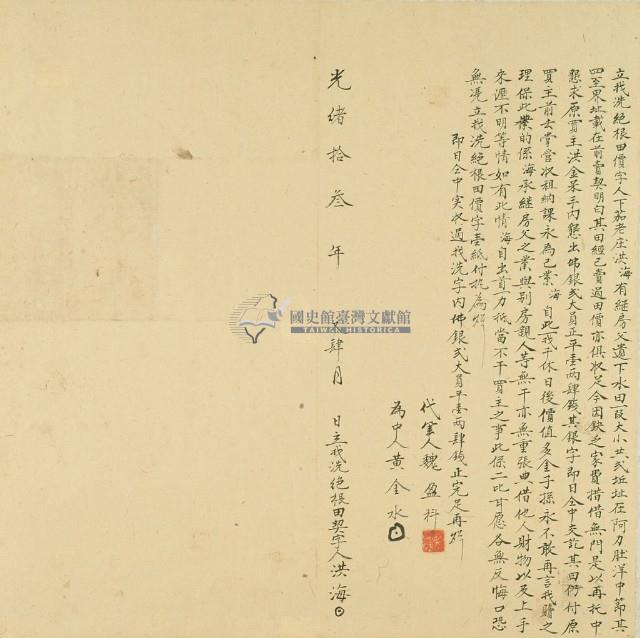 立找洗絕根田價字人下茄老庄洪海有經房父遺下水田一段大小共弍坵址在阿力肚洋中節其
四至界址載在前賣契明白其田經已賣過田價亦俱收足今因欽乏家費措借無門是以再托中
懇求原買主洪金采手內懇出佛銀弍大員正平壹兩肆錢其銀字即日仝中交訖其田仍付原
買主前去掌管收租納課永為己業海自此一找千休日後價值多金子孫永不敢再言找贖之
理保此業的係海承經房父之業與別房親人等無干亦無重張典借他人財物以及上手
來歷不明等情如有此情海自出首力抵當不干買主之事此係二比甘愿各無反悔口恐
無凭立找洗絕根田價字壹紙付执為炤
即日仝中实收過找洗字內佛銀弍大員平壹兩肆錢正完足再炤
代筆人魏盈科
為中人黃金水
光緒拾叁年 肆月 日立找洗絕根田契字人洪海
國史館臺灣文獻館
TAIWAN HISTORICA